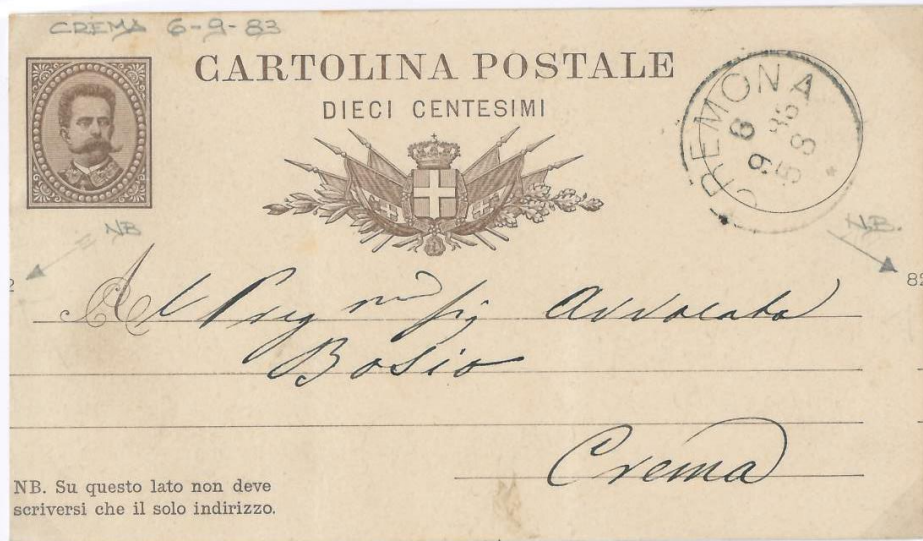 CREMA 6-9-83
CARTOLINA POSTALE
DIECI CENTESIMI
CREMONA
6
9
83
8 S
NB
N.B.
2
82
Al Preg mo Sig Avvocato
Bosio
Crema
NB. Su questo lato non deve
scriversi che il solo indirizzo.